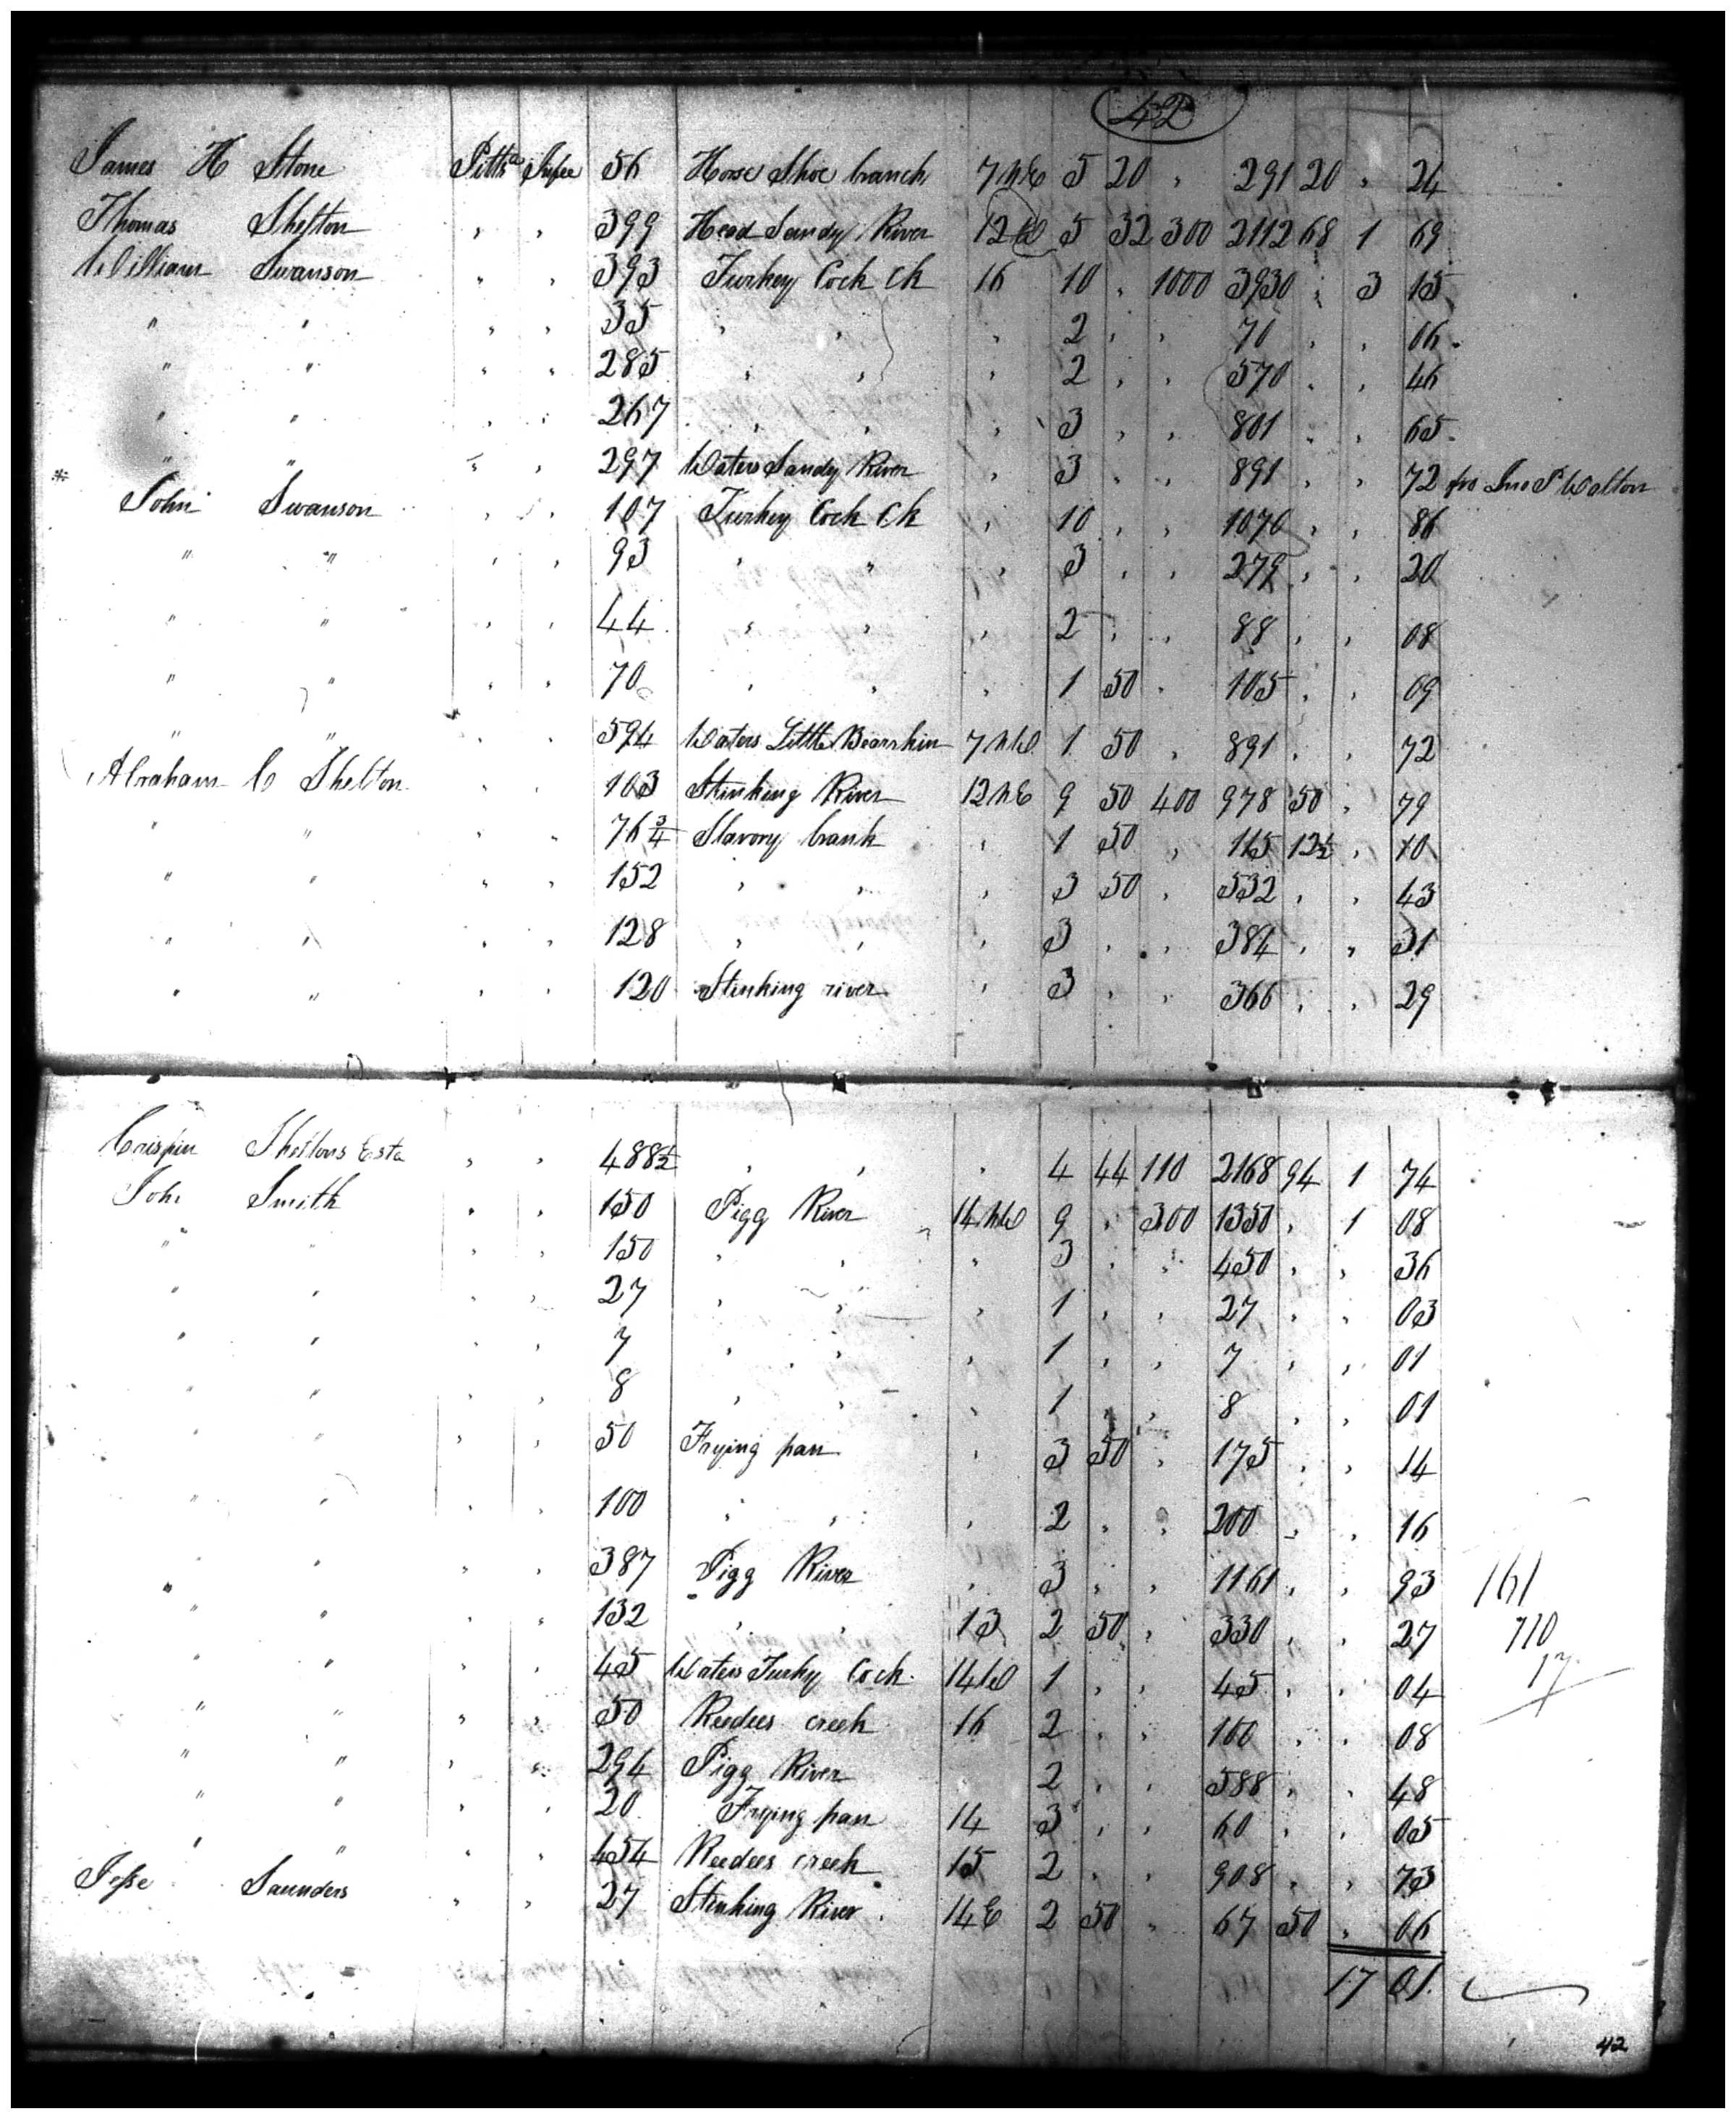 42
James H Stone Pittsa 56 Horse Shoe branch 7 N E 5 20 " 291 20 " 24
Thomas Shelton " " 399 Head Sandy River 12 W 5 32 300 2112 68 1 69
William Swanson " " 393 Turkey Cock Ck 16 10 " 1000 3930 " 3 15
" " " " 35 " " " 2 " " 70 " " 06
" " " " 285 " " " 2 " " 570 " " 46
" " " " 267 " " " 3 " " 801 " " 65
" " " " 297 Waters Sandy River " 3 " " 891 " " 72 pr Jno P Walton
* John Swanson " " 107 Turkey Cock Ck " 10 " " 1070 " " 86
" " " " 93 " " " 3 " " 279 " " 20
" " " " 44 " " " 2 " " 88 " " 08
" " " " 70 " " " 1 50 " 105 " " 09
" " " " 594 Waters Little Bearskin 7 N W 1 50 " 891 " " 72
Abraham C Shelton " " 103 Stinking River 12 N E 9 50 400 978 50 " 79
" " " " 76 3/4 branch " 1 50 " 115 12 1/2 " 10
" " " " 152 " " " 3 50 " 532 " " 43
" " " " 128 " " " 3 " " 384 " " 31
" " " " 120 Stinking river " 3 " " 366 " " 29
Crispin Sheltons Esta " " 488 1/2 " " " 4 44 110 2168 94 1 74
John Smith " " 150 Pigg River 14 N W 9 " 300 1350 " 1 08
" " " " 150 " " " 3 " " 450 " " 36
" " " " 27 " " " 1 " " 27 " " 03
" " " " 7 " " " 1 " " 7 " " 01
" " " " 8 " " " 1 " " 8 " " 01
" " " " 50 Frying pan " 3 50 " 175 " " 14
" " " " 100 " " " 2 " " 200 " " 16
" " " " 387 Pigg River " 3 " " 1161 " " 93 161
" " " " 132 " " 13 2 50 " 330 " " 27 710
" " " " 45 Waters Turky Cock 14 W 1 " " 45 " " 04 17
" " " " 50 Reedees creek 16 2 " " 100 " " 08
" " " " 294 Pigg River 2 " " 588 " " 48
" " " " 20 Frying pan 14 3 " " 60 " " 05
" " " " 454 Reedees creek 15 2 " " 908 " " 73
Jesse Saunders " " 27 Stinking River 14 E 2 50 " 67 50 " 06
17 01
42